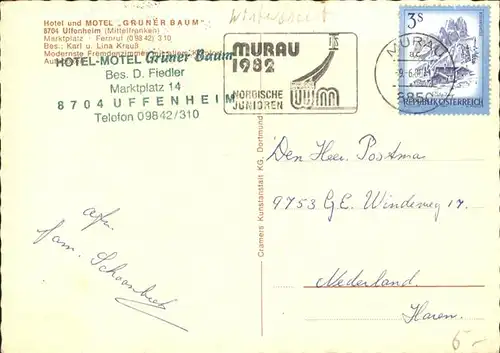 Hotel und MOTEL „GRÜNER BAUM"
8704 Uffenheim (Mittelfranken)
Marktplatz · Fernruf (0 98 42) 310
Bes.: Karl u. Lina Krauß
Modernste Fremdenzimmer
HOTEL-MOTEL Grüner Baum
Bes. D. Fiedler
Marktplatz 14
8704 UFFENHEIM
Telefon 09842/310
Wintersport
MURAU
1982
NORDISCHE
JUNIOREN
WWMM
3S
REPUBLIK ÖSTERREICH
MURAU
8850
Cramers Kunstanstalt KG, Dortmund
Den Heer Postmas
9753 G.E. Windeweg 17.
Nederland.
Haren.
afz.
fam. Schoonbeek
5-